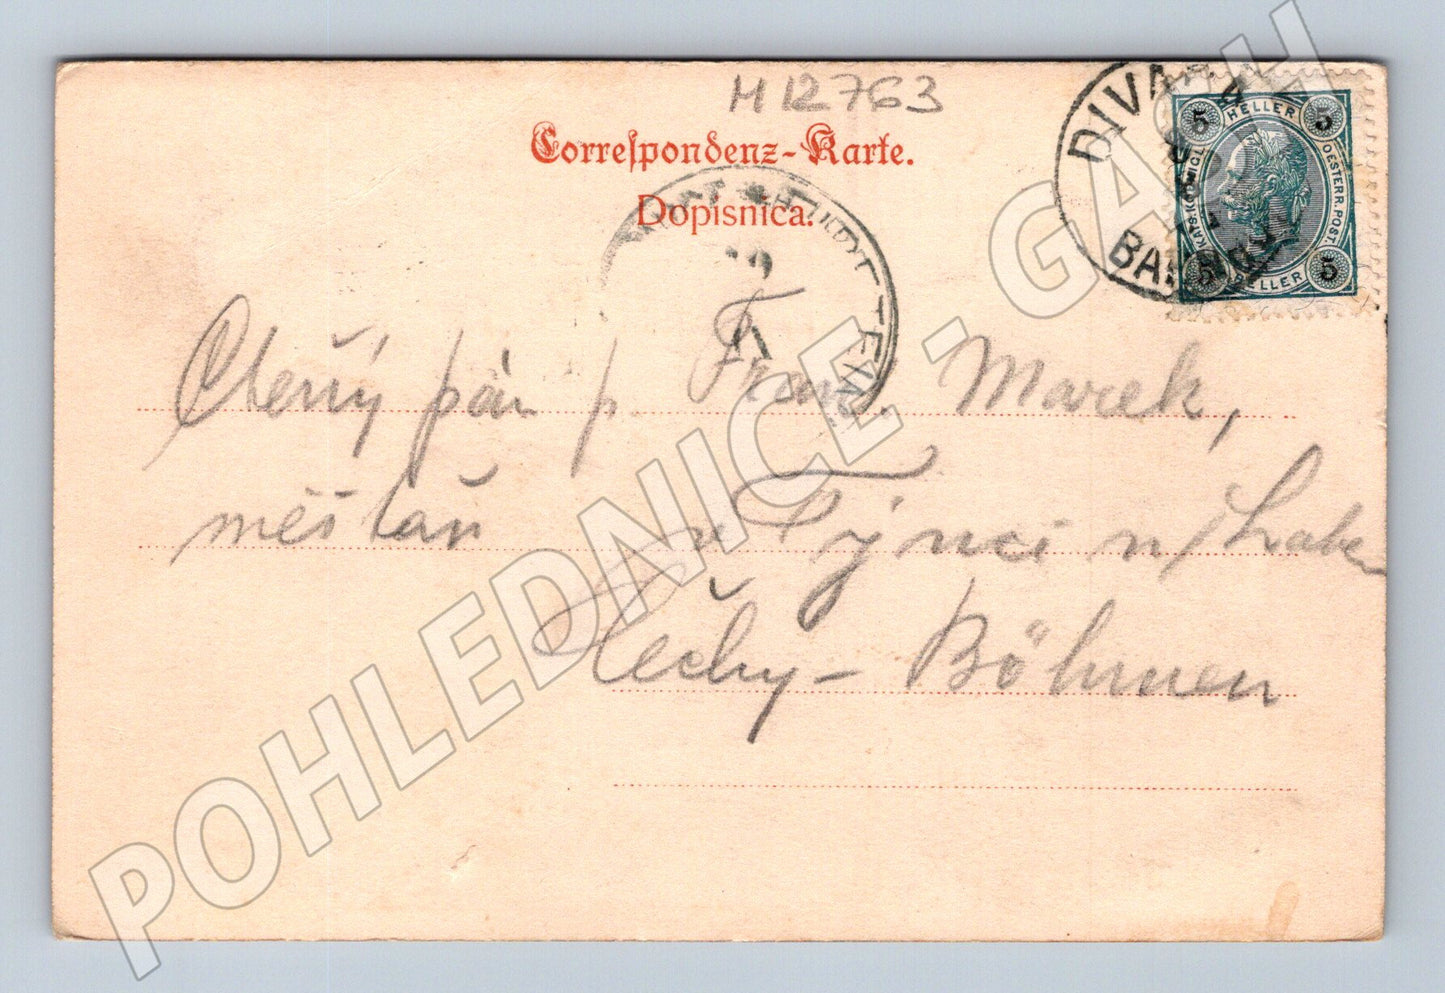 M 12763
Correspondenz-Karte.
Dopisnica.
DIVAČA
BAHNHOF
5 HELLER 5
KAIS. KÖNIGL. OESTERR. POST.
5 HELLER 5
Ctěný pán p Fran. Marek,
měšťan v Týnci n/Labe
Čechy - Böhmen
POHLEDNICE - GASH